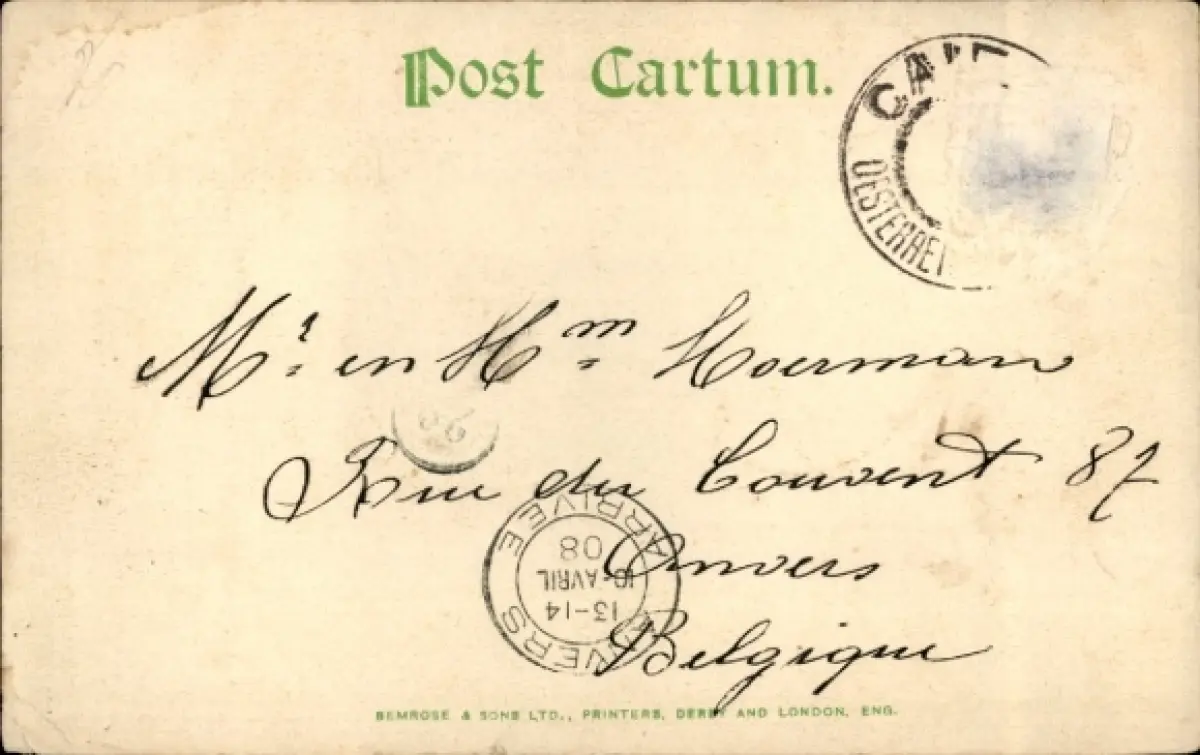 Post Cartum.
OESTERREI
Mr. en Mm Moerman
Rue du Couvent 87
Anvers
Belgique
ANVERS ARRIVEE
13-14
10 AVRIL
08
BEMROSE & SONS LTD., PRINTERS, DERBY AND LONDON, ENG.